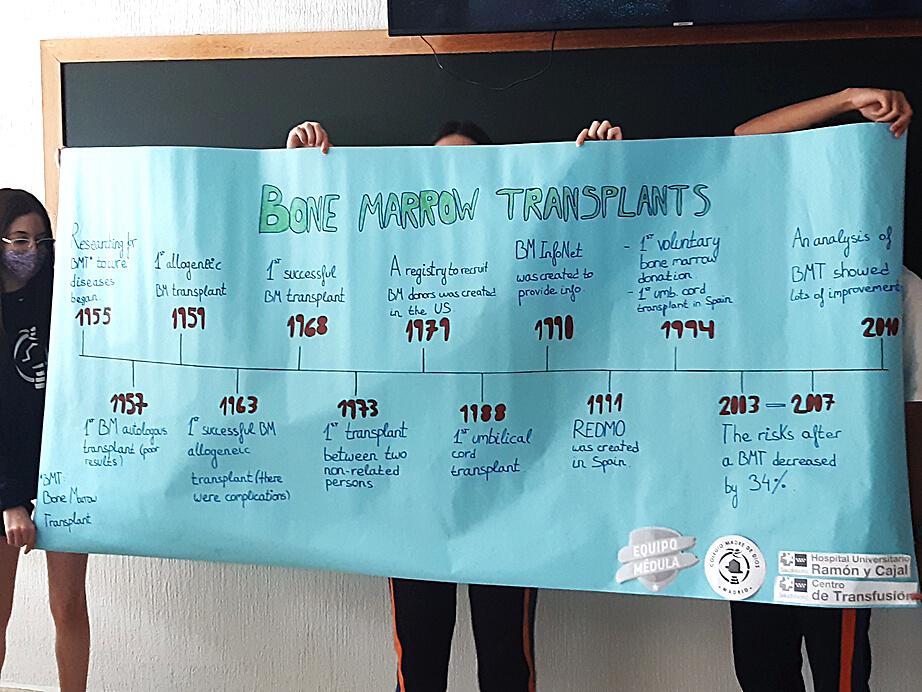 BONE MARROW TRANSPLANTS
Researching for
BMT* to cure
diseases
began.
1955
1st allogeneic
BM transplant
1959
1st successful
BM transplant
1968
A registry to recruit
BM donors was created
in the US
1979
BM InfoNet
was created to
provide info.
1990
- 1st voluntary
bone marrow
donation
- 1st umb. cord
transplant in Spain
1994
An analysis of
BMT showed
lots of improvement
2010
1957
1st BM autologous
transplant (poor
results)
1963
1st successful BM
allogeneic
transplant (there
were complications)
1973
1st transplant
between two
non-related
persons
1988
1st umbilical
cord
transplant
1991
REDMO
was created
in Spain.
2003 — 2007
The risks after
a BMT decreased
by 34%.
*BMT:
Bone Marrow
Transplant
EQUIPO
MÉDULA
COLEGIO MADRE DE DIOS
• MADRID •
Hospital Universitario
Ramón y Cajal
Centro
de Transfusión